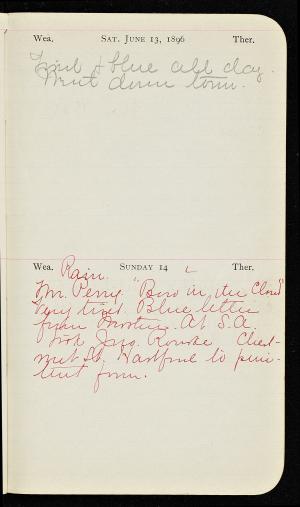 Wea. SAT. JUNE 13, 1896 Ther.
Tired & blue all day.
Went down town.
Wea. Rain. SUNDAY 14 Ther.
Mr. Perry. "Bow in the Cloud"
Very tired. Blue letter
from Mother. At S.A.
Took Jno. Rourke Chest-
nut St. Hartford to peni-
tent form.